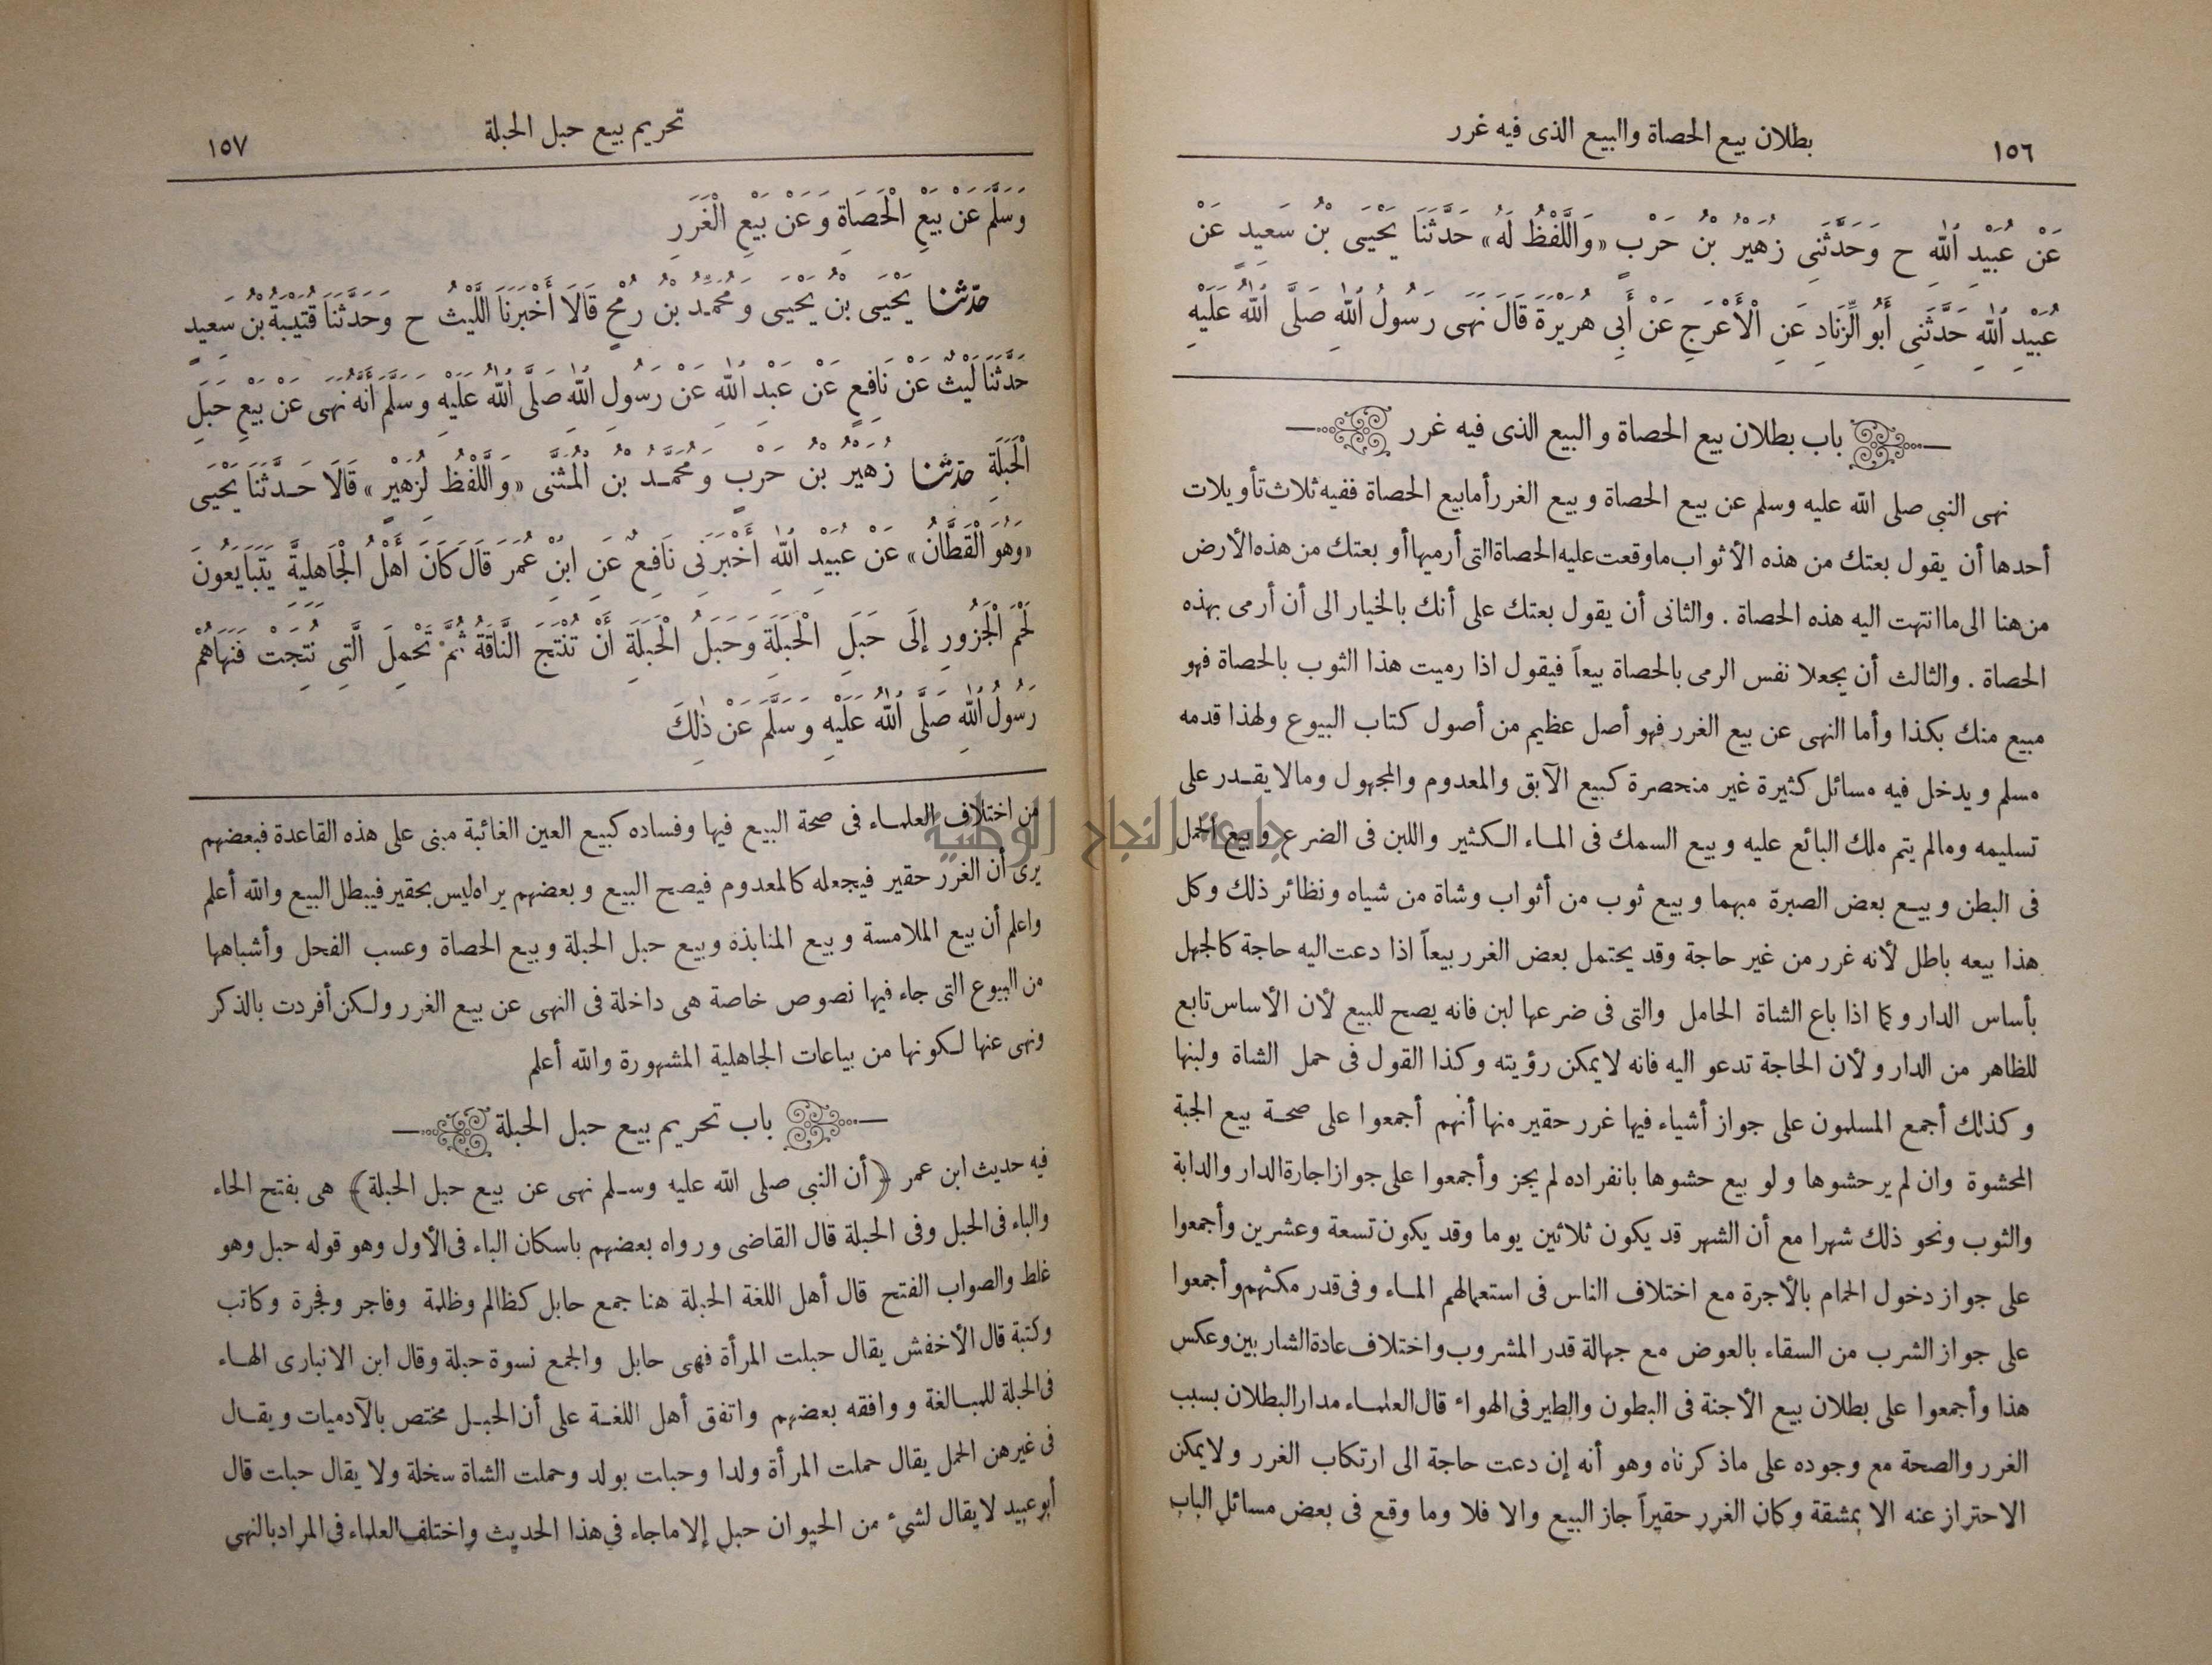 ١٥٦
بطلان بيع الحصاة والبيع الذى فيه غرر
عَنْ عُبَيْدِ اللهِ ح وَحَدَّثَنِى زُهَيْرُ بْنُ حَرْبٍ «وَاللَّفْظُ لَهُ» حَدَّثَنَا يَحْيَى بْنُ سَعِيدٍ عَنْ
عُبَيْدِ اللهِ حَدَّثَنِى أَبُو الزِّنَادِ عَنِ الْأَعْرَجِ عَنْ أَبِى هُرَيْرَةَ قَالَ نَهَى رَسُولُ اللهِ صَلَّى اللهُ عَلَيْهِ
باب بطلان بيع الحصاة والبيع الذى فيه غرر
نهى النبى صلى الله عليه وسلم عن بيع الحصاة وبيع الغرر أما بيع الحصاة ففيه ثلاث تأويلات
أحدها أن يقول بعتك من هذه الأثواب ما وقعت عليه الحصاة التى أرميها أو بعتك من هذه الأرض
من هنا الى ما انتهت اليه هذه الحصاة . والثانى أن يقول بعتك على أنك بالخيار الى أن أرمى بهذه
الحصاة . والثالث أن يجعلا نفس الرمى بالحصاة بيعاً فيقول اذا رميت هذا الثوب بالحصاة فهو
مبيع منك بكذا وأما النهى عن بيع الغرر فهو أصل عظيم من أصول كتاب البيوع ولهذا قدمه
مسلم ويدخل فيه مسائل كثيرة غير منحصرة كبيع الآبق والمعدوم والمجهول ومالا يقدر على
تسليمه ومالم يتم ملك البائع عليه وبيع السمك فى الماء الكثير واللبن فى الضرع وبيع الحمل
فى البطن وبيع بعض الصبرة مبهما وبيع ثوب من أثواب وشاة من شياه ونظائر ذلك وكل
هذا بيعه باطل لأنه غرر من غير حاجة وقد يحتمل بعض الغرر بيعاً اذا دعت اليه حاجة كالجهل
بأساس الدار وكما اذا باع الشاة الحامل والتى فى ضرعها لبن فانه يصح للبيع لأن الأساس تابع
للظاهر من الدار ولأن الحاجة تدعو اليه فانه لا يمكن رؤيته وكذا القول فى حمل الشاة ولبنها
وكذلك أجمع المسلمون على جواز أشياء فيها غرر حقير منها أنهم أجمعوا على صحة بيع الجبة
المحشوة وان لم ير حشوها ولو بيع حشوها بانفراده لم يجز وأجمعوا على جواز اجارة الدار والدابة
والثوب ونحو ذلك شهرا مع أن الشهر قد يكون ثلاثين يوما وقد يكون تسعة وعشرين وأجمعوا
على جواز دخول الحمام بالأجرة مع اختلاف الناس فى استعمالهم الماء وفى قدر مكثهم وأجمعوا
على جواز الشرب من السقاء بالعوض مع جهالة قدر المشروب واختلاف عادة الشاربين وعكس
هذا وأجمعوا على بطلان بيع الأجنة فى البطون والطير فى الهواء قال العلماء مدار البطلان بسبب
الغرر والصحة مع وجوده على ماذكرناه وهو أنه إن دعت حاجة الى ارتكاب الغرر ولا يمكن
الاحتراز عنه الا بمشقة وكان الغرر حقيراً جاز البيع والا فلا وما وقع فى بعض مسائل الباب
تحريم بيع حبل الحبلة
١٥٧
وَسَلَّمَ عَنْ بَيْعِ الْحَصَاةِ وَعَنْ بَيْعِ الْغَرَرِ
حدثنا يَحْيَى بْنُ يَحْيَى وَمُحَمَّدُ بْنُ رُمْحٍ قَالَا أَخْبَرَنَا اللَّيْثُ ح وَحَدَّثَنَا قُتَيْبَةُ بْنُ سَعِيدٍ
حَدَّثَنَا لَيْثٌ عَنْ نَافِعٍ عَنْ عَبْدِ اللهِ عَنْ رَسُولِ اللهِ صَلَّى اللهُ عَلَيْهِ وَسَلَّمَ أَنَّهُ نَهَى عَنْ بَيْعِ حَبَلِ
الْحَبَلَةِ حدثنا زُهَيْرُ بْنُ حَرْبٍ وَمُحَمَّدُ بْنُ الْمُثَنَّى «وَاللَّفْظُ لِزُهَيْرٍ» قَالَا حَدَّثَنَا يَحْيَى
«وَهُوَ الْقَطَّانُ» عَنْ عُبَيْدِ اللهِ أَخْبَرَنِى نَافِعٌ عَنِ ابْنِ عُمَرَ قَالَ كَانَ أَهْلُ الْجَاهِلِيَّةِ يَتَبَايَعُونَ
لَحْمَ الْجَزُورِ إِلَى حَبَلِ الْحَبَلَةِ وَحَبَلُ الْحَبَلَةِ أَنْ تُنْتَجَ النَّاقَةُ ثُمَّ تَحْمِلَ الَّتِى نُتِجَتْ فَنَهَاهُمْ
رَسُولُ اللهِ صَلَّى اللهُ عَلَيْهِ وَسَلَّمَ عَنْ ذٰلِكَ
من اختلاف العلماء فى صحة البيع فيها وفساده كبيع العين الغائبة مبنى على هذه القاعدة فبعضهم
يرى أن الغرر حقير فيجعله كالمعدوم فيصح البيع وبعضهم يراه ليس بحقير فيبطل البيع والله أعلم
واعلم أن بيع الملامسة وبيع المنابذة وبيع حبل الحبلة وبيع الحصاة وعسب الفحل وأشباهها
من البيوع التى جاء فيها نصوص خاصة هى داخلة فى النهى عن بيع الغرر ولكن أفردت بالذكر
ونهى عنها لكونها من بياعات الجاهلية المشهورة والله أعلم
باب تحريم بيع حبل الحبلة
فيه حديث ابن عمر ﴿أن النبى صلى الله عليه وسلم نهى عن بيع حبل الحبلة﴾ هى بفتح الحاء
والباء فى الحبل وفى الحبلة قال القاضى ورواه بعضهم باسكان الباء فى الأول وهو قوله حبل وهو
غلط والصواب الفتح قال أهل اللغة الحبلة هنا جمع حابل كظالم وظلمة وفاجر وفجرة وكاتب
وكتبة قال الأخفش يقال حبلت المرأة فهى حابل والجمع نسوة حبلة وقال ابن الانبارى الهاء
فى الحبلة للمبالغة ووافقه بعضهم واتفق أهل اللغة على أن الحبل مختص بالآدميات ويقال
فى غيرهن الحمل يقال حملت المرأة ولدا وحبلت بولد وحملت الشاة سخلة ولا يقال حبلت قال
أبو عبيد لا يقال لشىء من الحيوان حبل إلا ماجاء فى هذا الحديث واختلف العلماء فى المراد بالنهى
جامعة النجاح الوطنية